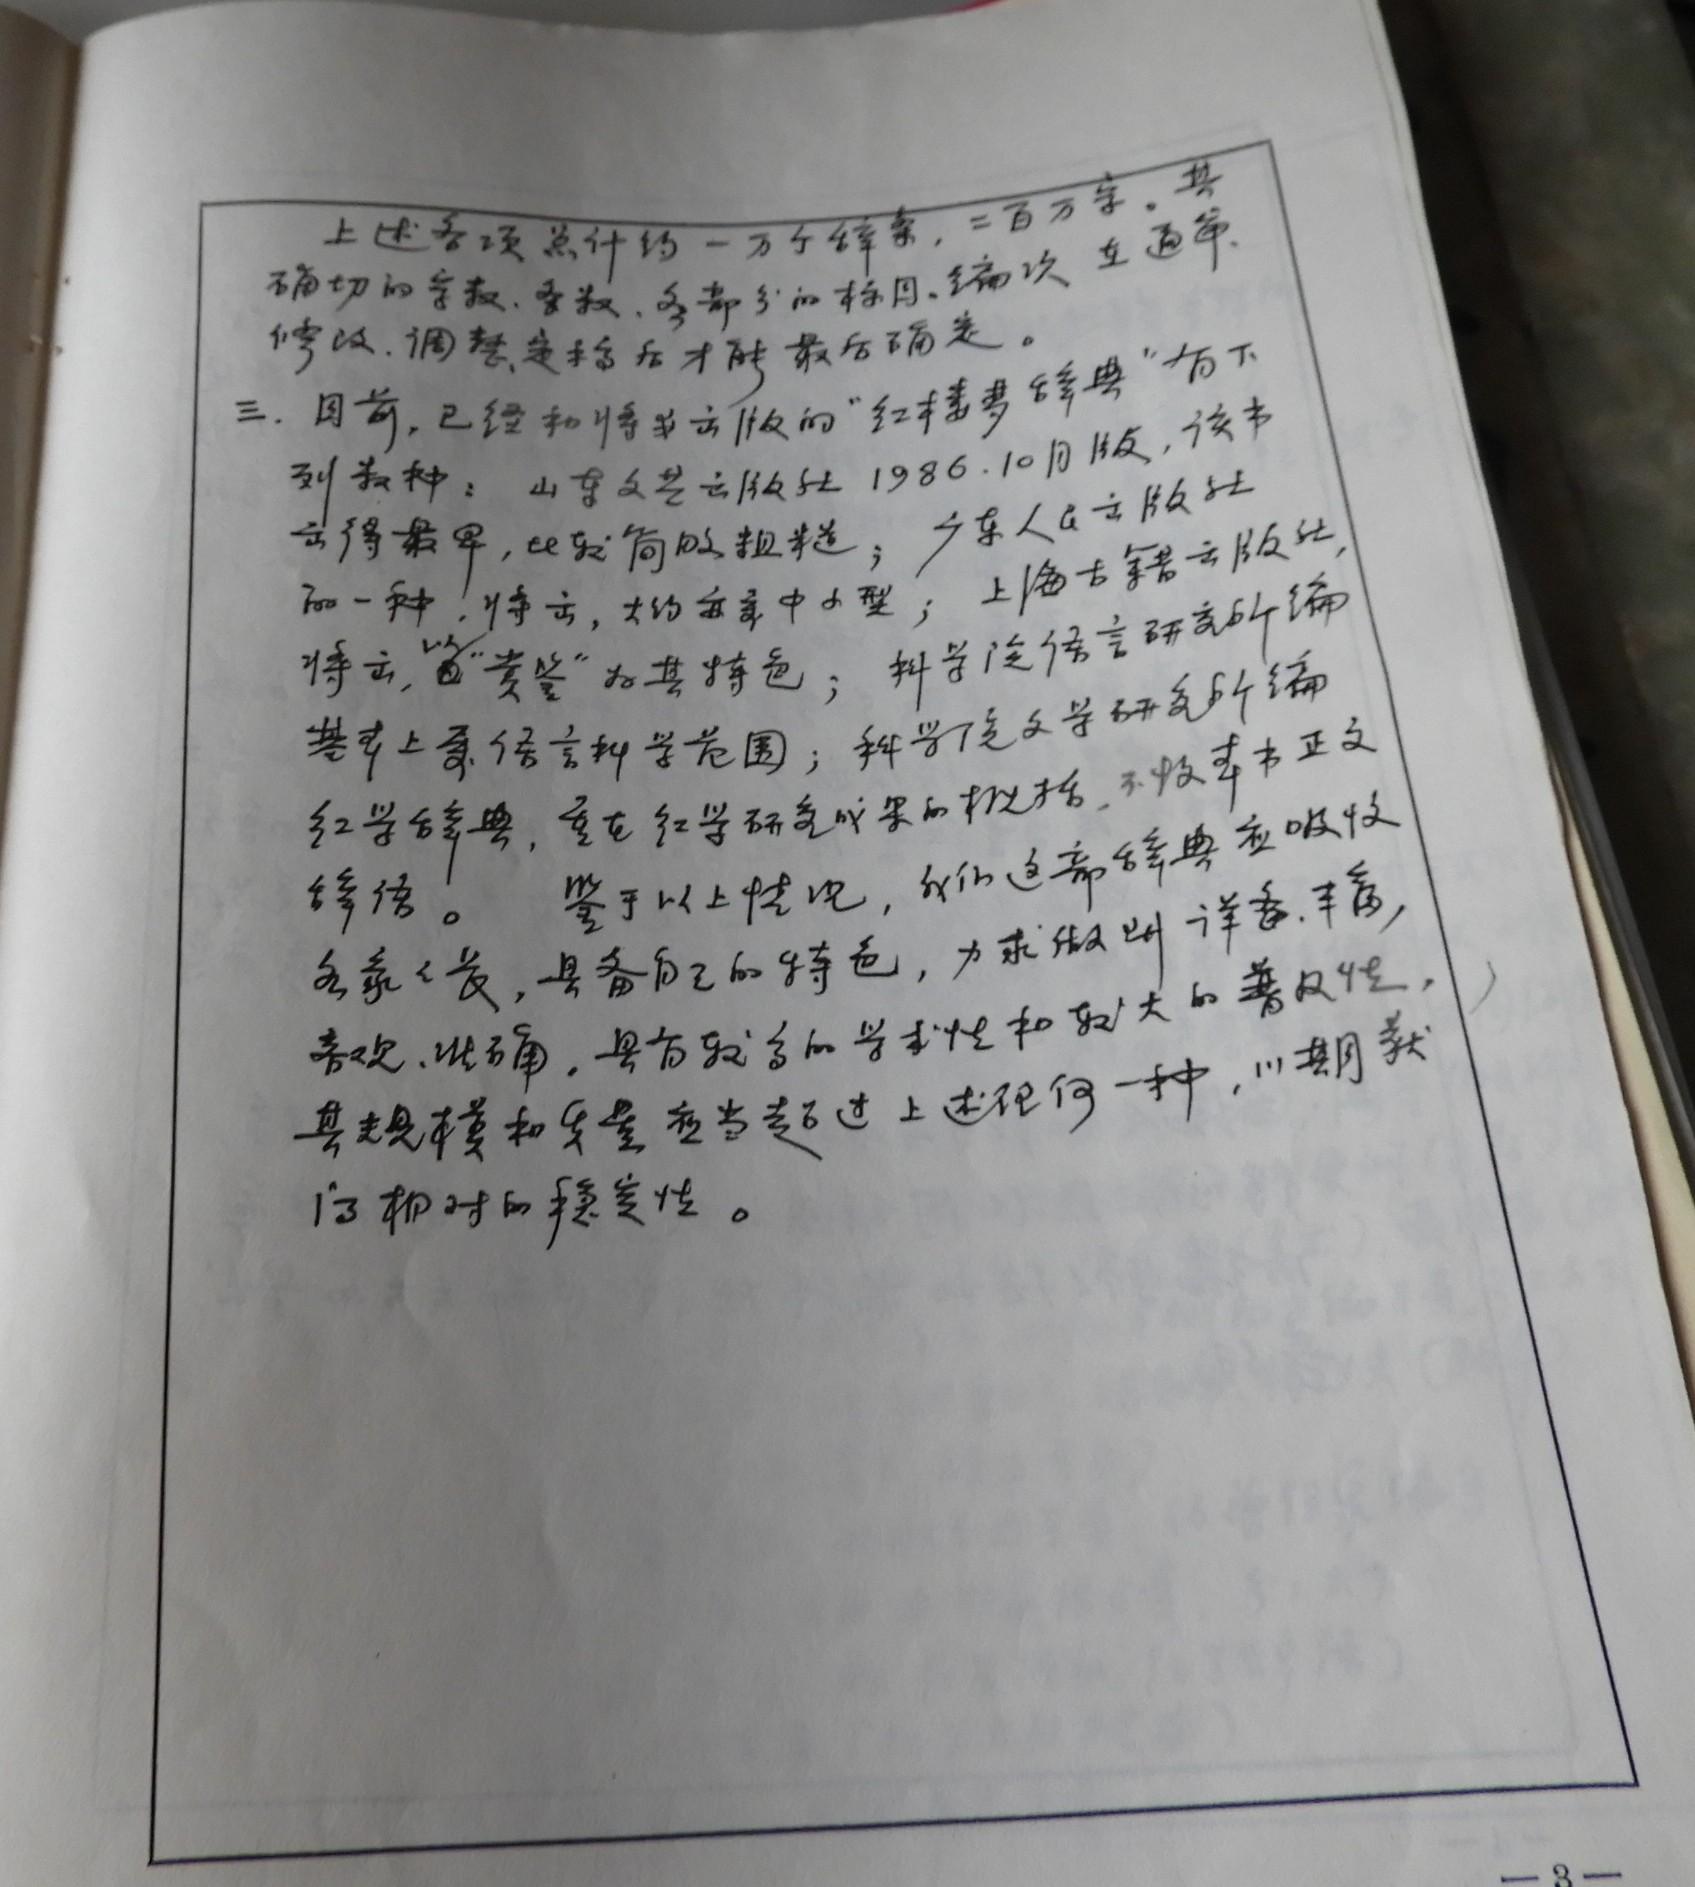 上述各项总计约一万个辞条，二百万字。其
确切的字数、条数、各部分的标目、编次在通审、
修改、调整定稿后才能最后确定。
三、目前，已经和将要出版的“红楼梦辞典”有下
列数种：山东文艺出版社1986.10月版，该书
出得最早，比较简略粗糙；广东人民出版社
的一种，将出，大约亦属中小型；上海古籍出版社，
将出，以“赏鉴”为其特色；科学院语言研究所编
基本上属语言科学范围；科学院文学研究所编
红学辞典，重在红学研究成果的概括，不收本书正文
辞语。 鉴于以上情况，我们这部辞典应吸收
各家之长，具备自己的特色，力求做到详备、丰富，
客观、准确，具有较高的学术性和较大的普及性，
其规模和质量应当超过上述任何一种，以期获
得相对的稳定性。
— 3 —